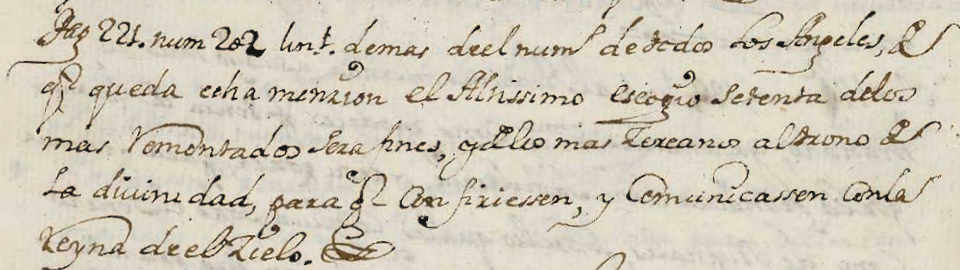 Pag 221. num 202 lin.t. demas deel num.o de todos los Angeles, de
q.e queda echa menzion el Altissimo escogio setenta delos
mas Remontados Serafines, y delos mas zercanos al trono de
La diuinidad, para q.e Confiriessen, y Comunicassen Conla
Reyna deel Zielo.